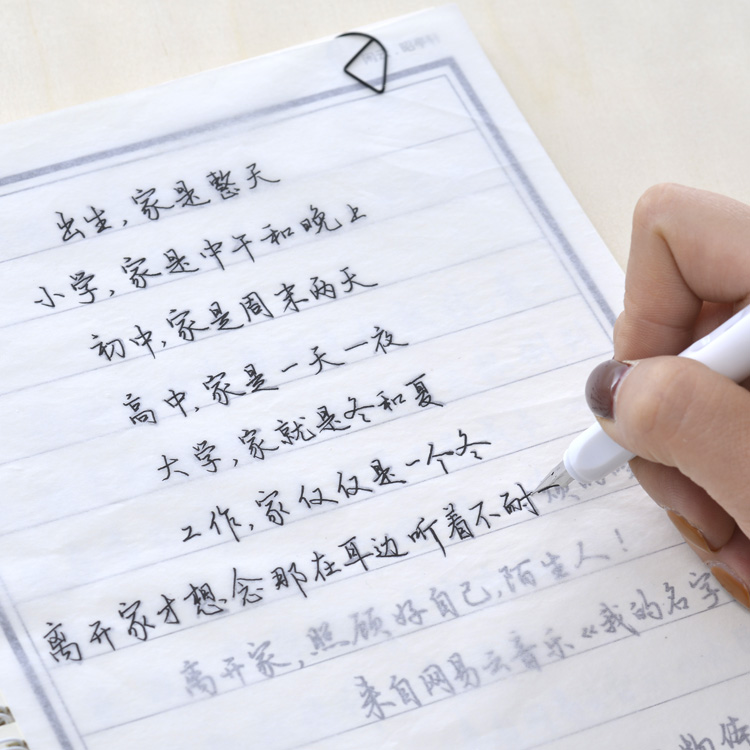 出生,家是整天
小学,家是中午和晚上
初中,家是周末两天
高中,家是一天一夜
大学,家就是冬和夏
工作,家仅仅是一个冬
离开家才想念那在耳边听着不耐
离开家,照顾好自己,陌生人!
来自网易云音乐《我的名字